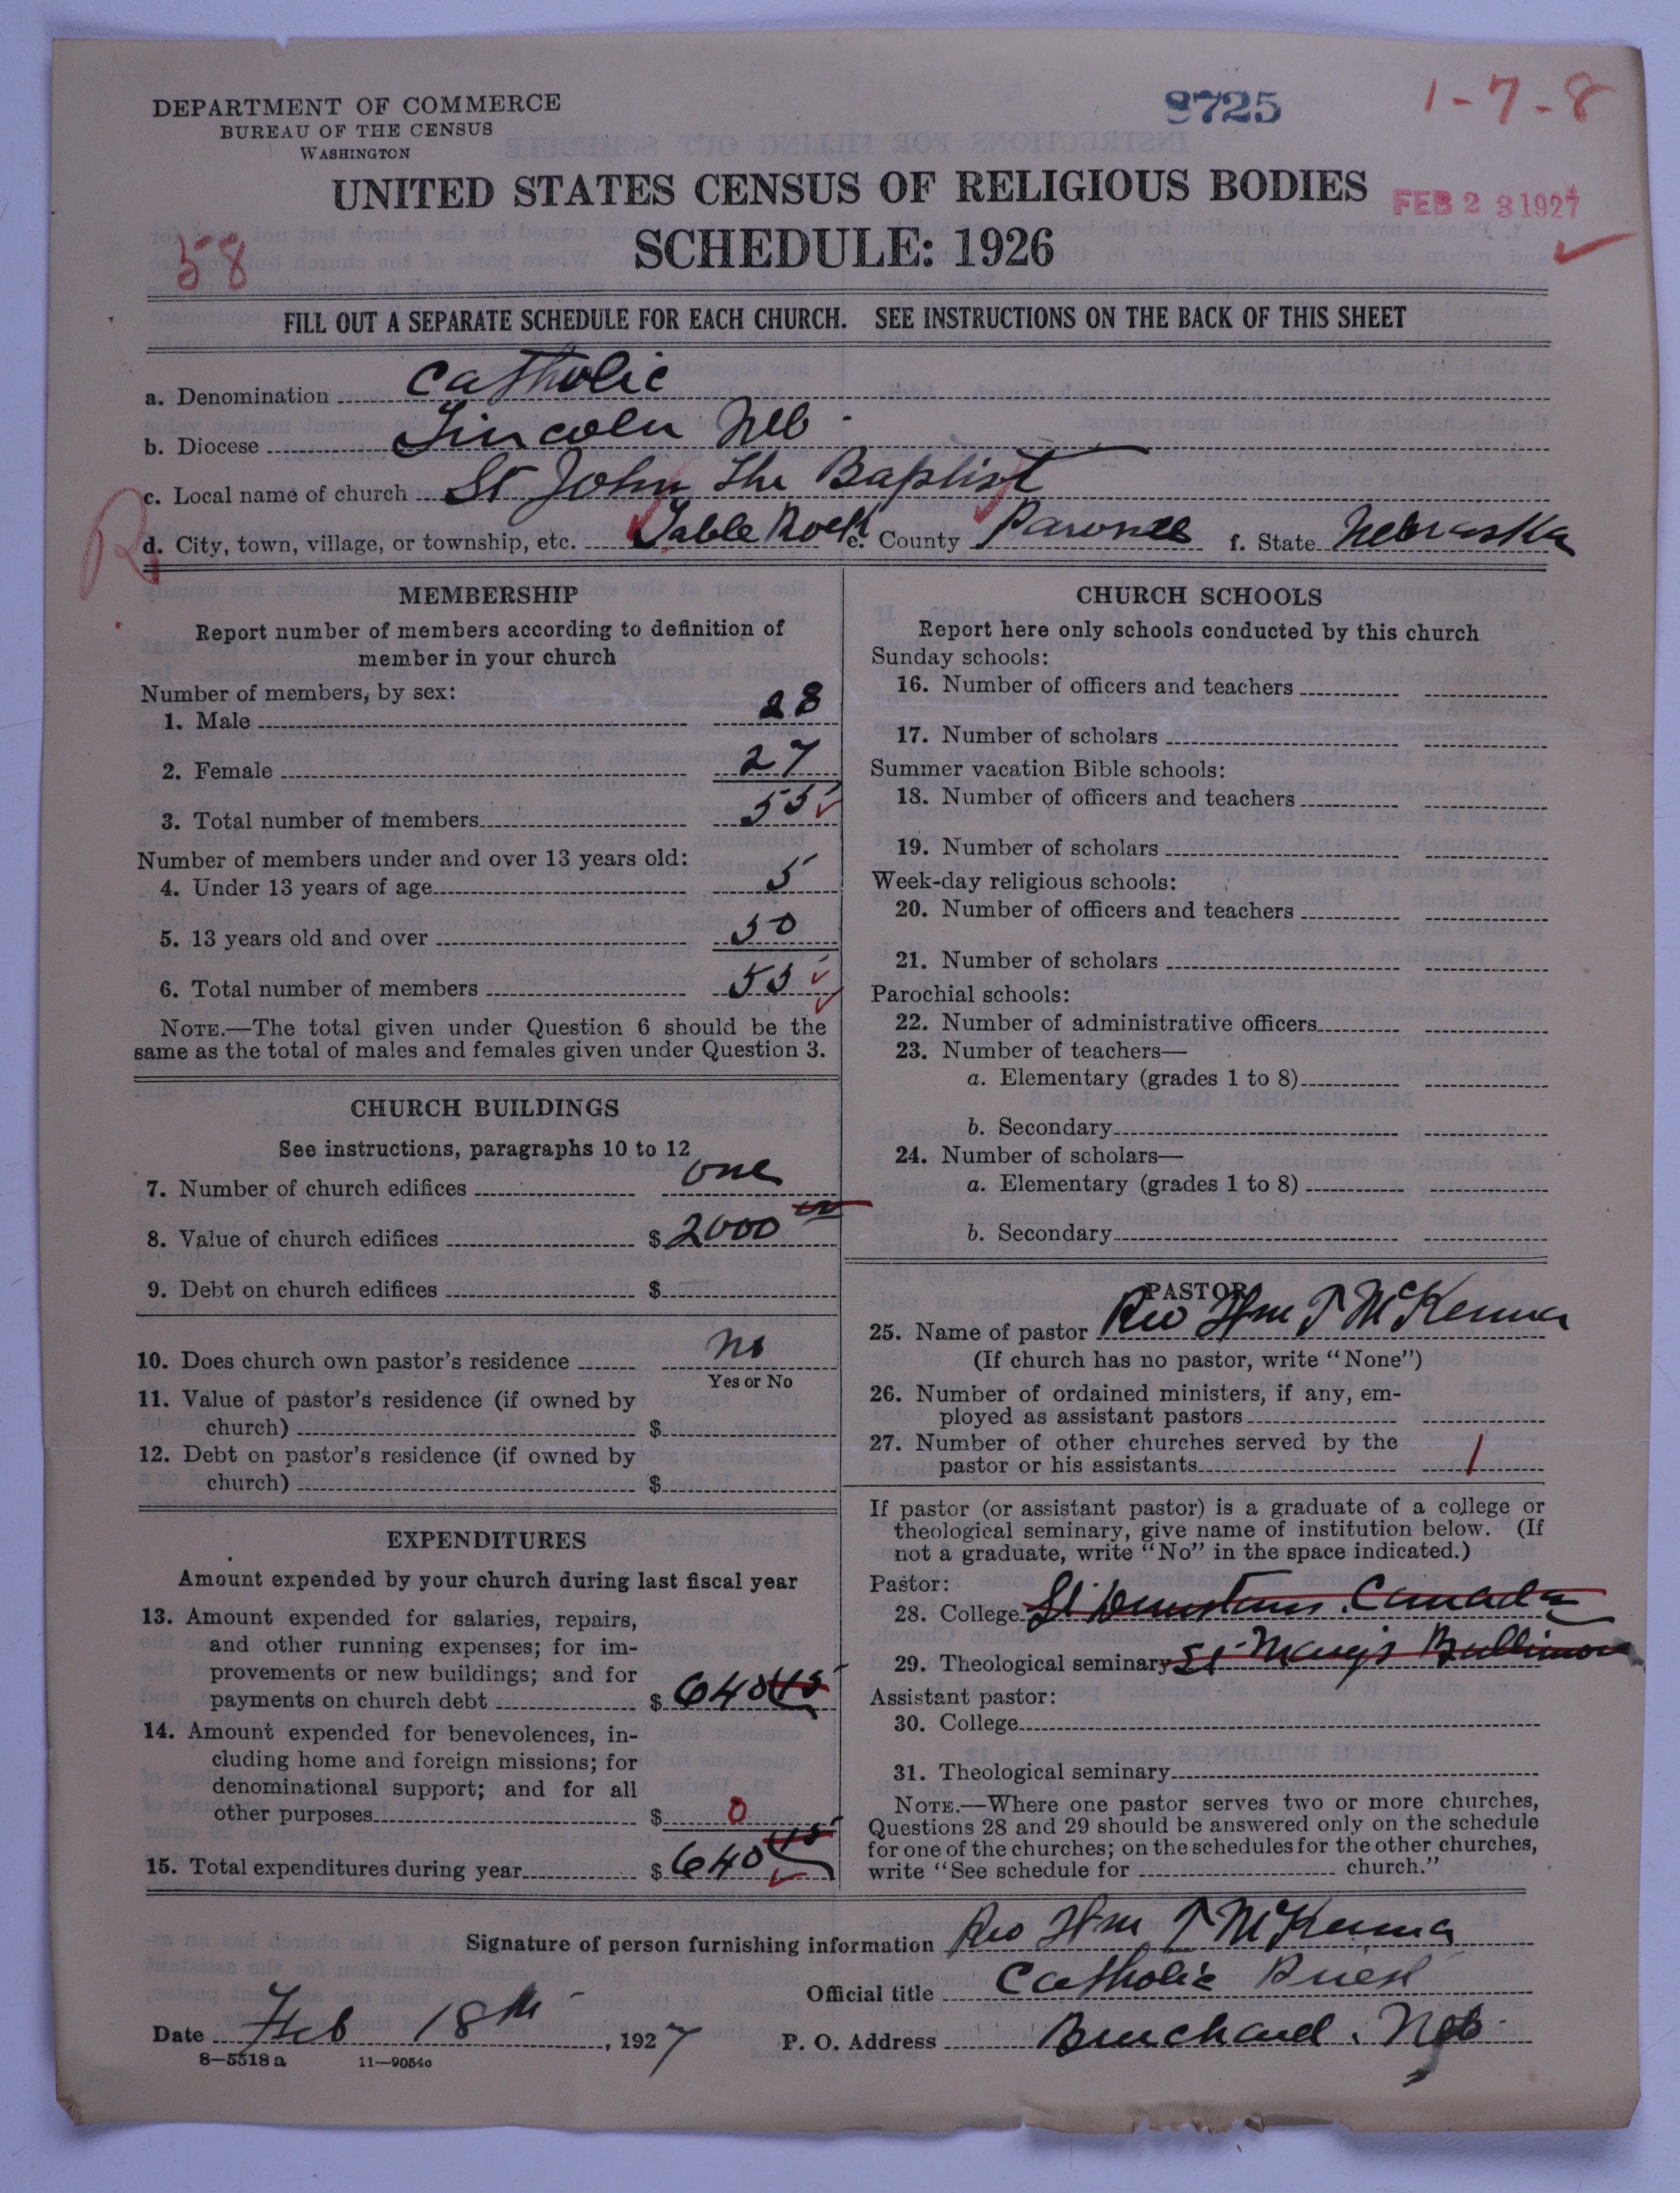 DEPARTMENT OF COMMERCE
BUREAU OF THE CENSUS
WASHINGTON
8725
1-7-8
UNITED STATES CENSUS OF RELIGIOUS BODIES
FEB 23 1927
SCHEDULE: 1926
58
FILL OUT A SEPARATE SCHEDULE FOR EACH CHURCH. SEE INSTRUCTIONS ON THE BACK OF THIS SHEET
a. Denomination Catholic
b. Diocese Lincoln Neb
c. Local name of church St John the Baptist
R
d. City, town, village, or township, etc. Table Rock e. County Pawnee f. State Nebraska
MEMBERSHIP
Report number of members according to definition of
member in your church
Number of members, by sex:
1. Male 28
2. Female 27
3. Total number of members 55
Number of members under and over 13 years old:
4. Under 13 years of age 5
5. 13 years old and over 50
6. Total number of members 55
NOTE.—The total given under Question 6 should be the
same as the total of males and females given under Question 3.
CHURCH BUILDINGS
See instructions, paragraphs 10 to 12
7. Number of church edifices one
8. Value of church edifices $ 2000
9. Debt on church edifices $
10. Does church own pastor's residence no
Yes or No
11. Value of pastor's residence (if owned by
church) $
12. Debt on pastor's residence (if owned by
church) $
EXPENDITURES
Amount expended by your church during last fiscal year
13. Amount expended for salaries, repairs,
and other running expenses; for im-
provements or new buildings; and for
payments on church debt $ 640 45
14. Amount expended for benevolences, in-
cluding home and foreign missions; for
denominational support; and for all
other purposes $ 0
15. Total expenditures during year $ 640 45
CHURCH SCHOOLS
Report here only schools conducted by this church
Sunday schools:
16. Number of officers and teachers
17. Number of scholars
Summer vacation Bible schools:
18. Number of officers and teachers
19. Number of scholars
Week-day religious schools:
20. Number of officers and teachers
21. Number of scholars
Parochial schools:
22. Number of administrative officers
23. Number of teachers—
a. Elementary (grades 1 to 8)
b. Secondary
24. Number of scholars—
a. Elementary (grades 1 to 8)
b. Secondary
PASTOR
25. Name of pastor Rev Wm T McKenna
(If church has no pastor, write "None")
26. Number of ordained ministers, if any, em-
ployed as assistant pastors
27. Number of other churches served by the
pastor or his assistants 1
If pastor (or assistant pastor) is a graduate of a college or
theological seminary, give name of institution below. (If
not a graduate, write "No" in the space indicated.)
Pastor:
28. College St Dunstans Canada
29. Theological seminary St Mary's Baltimore
Assistant pastor:
30. College
31. Theological seminary
NOTE.—Where one pastor serves two or more churches,
Questions 28 and 29 should be answered only on the schedule
for one of the churches; on the schedules for the other churches,
write "See schedule for church."
Signature of person furnishing information Rev Wm T McKenna
Official title Catholic Priest
Date Feb 18th, 1927 P. O. Address Burchard, Neb
8—5518 a 11—9054c